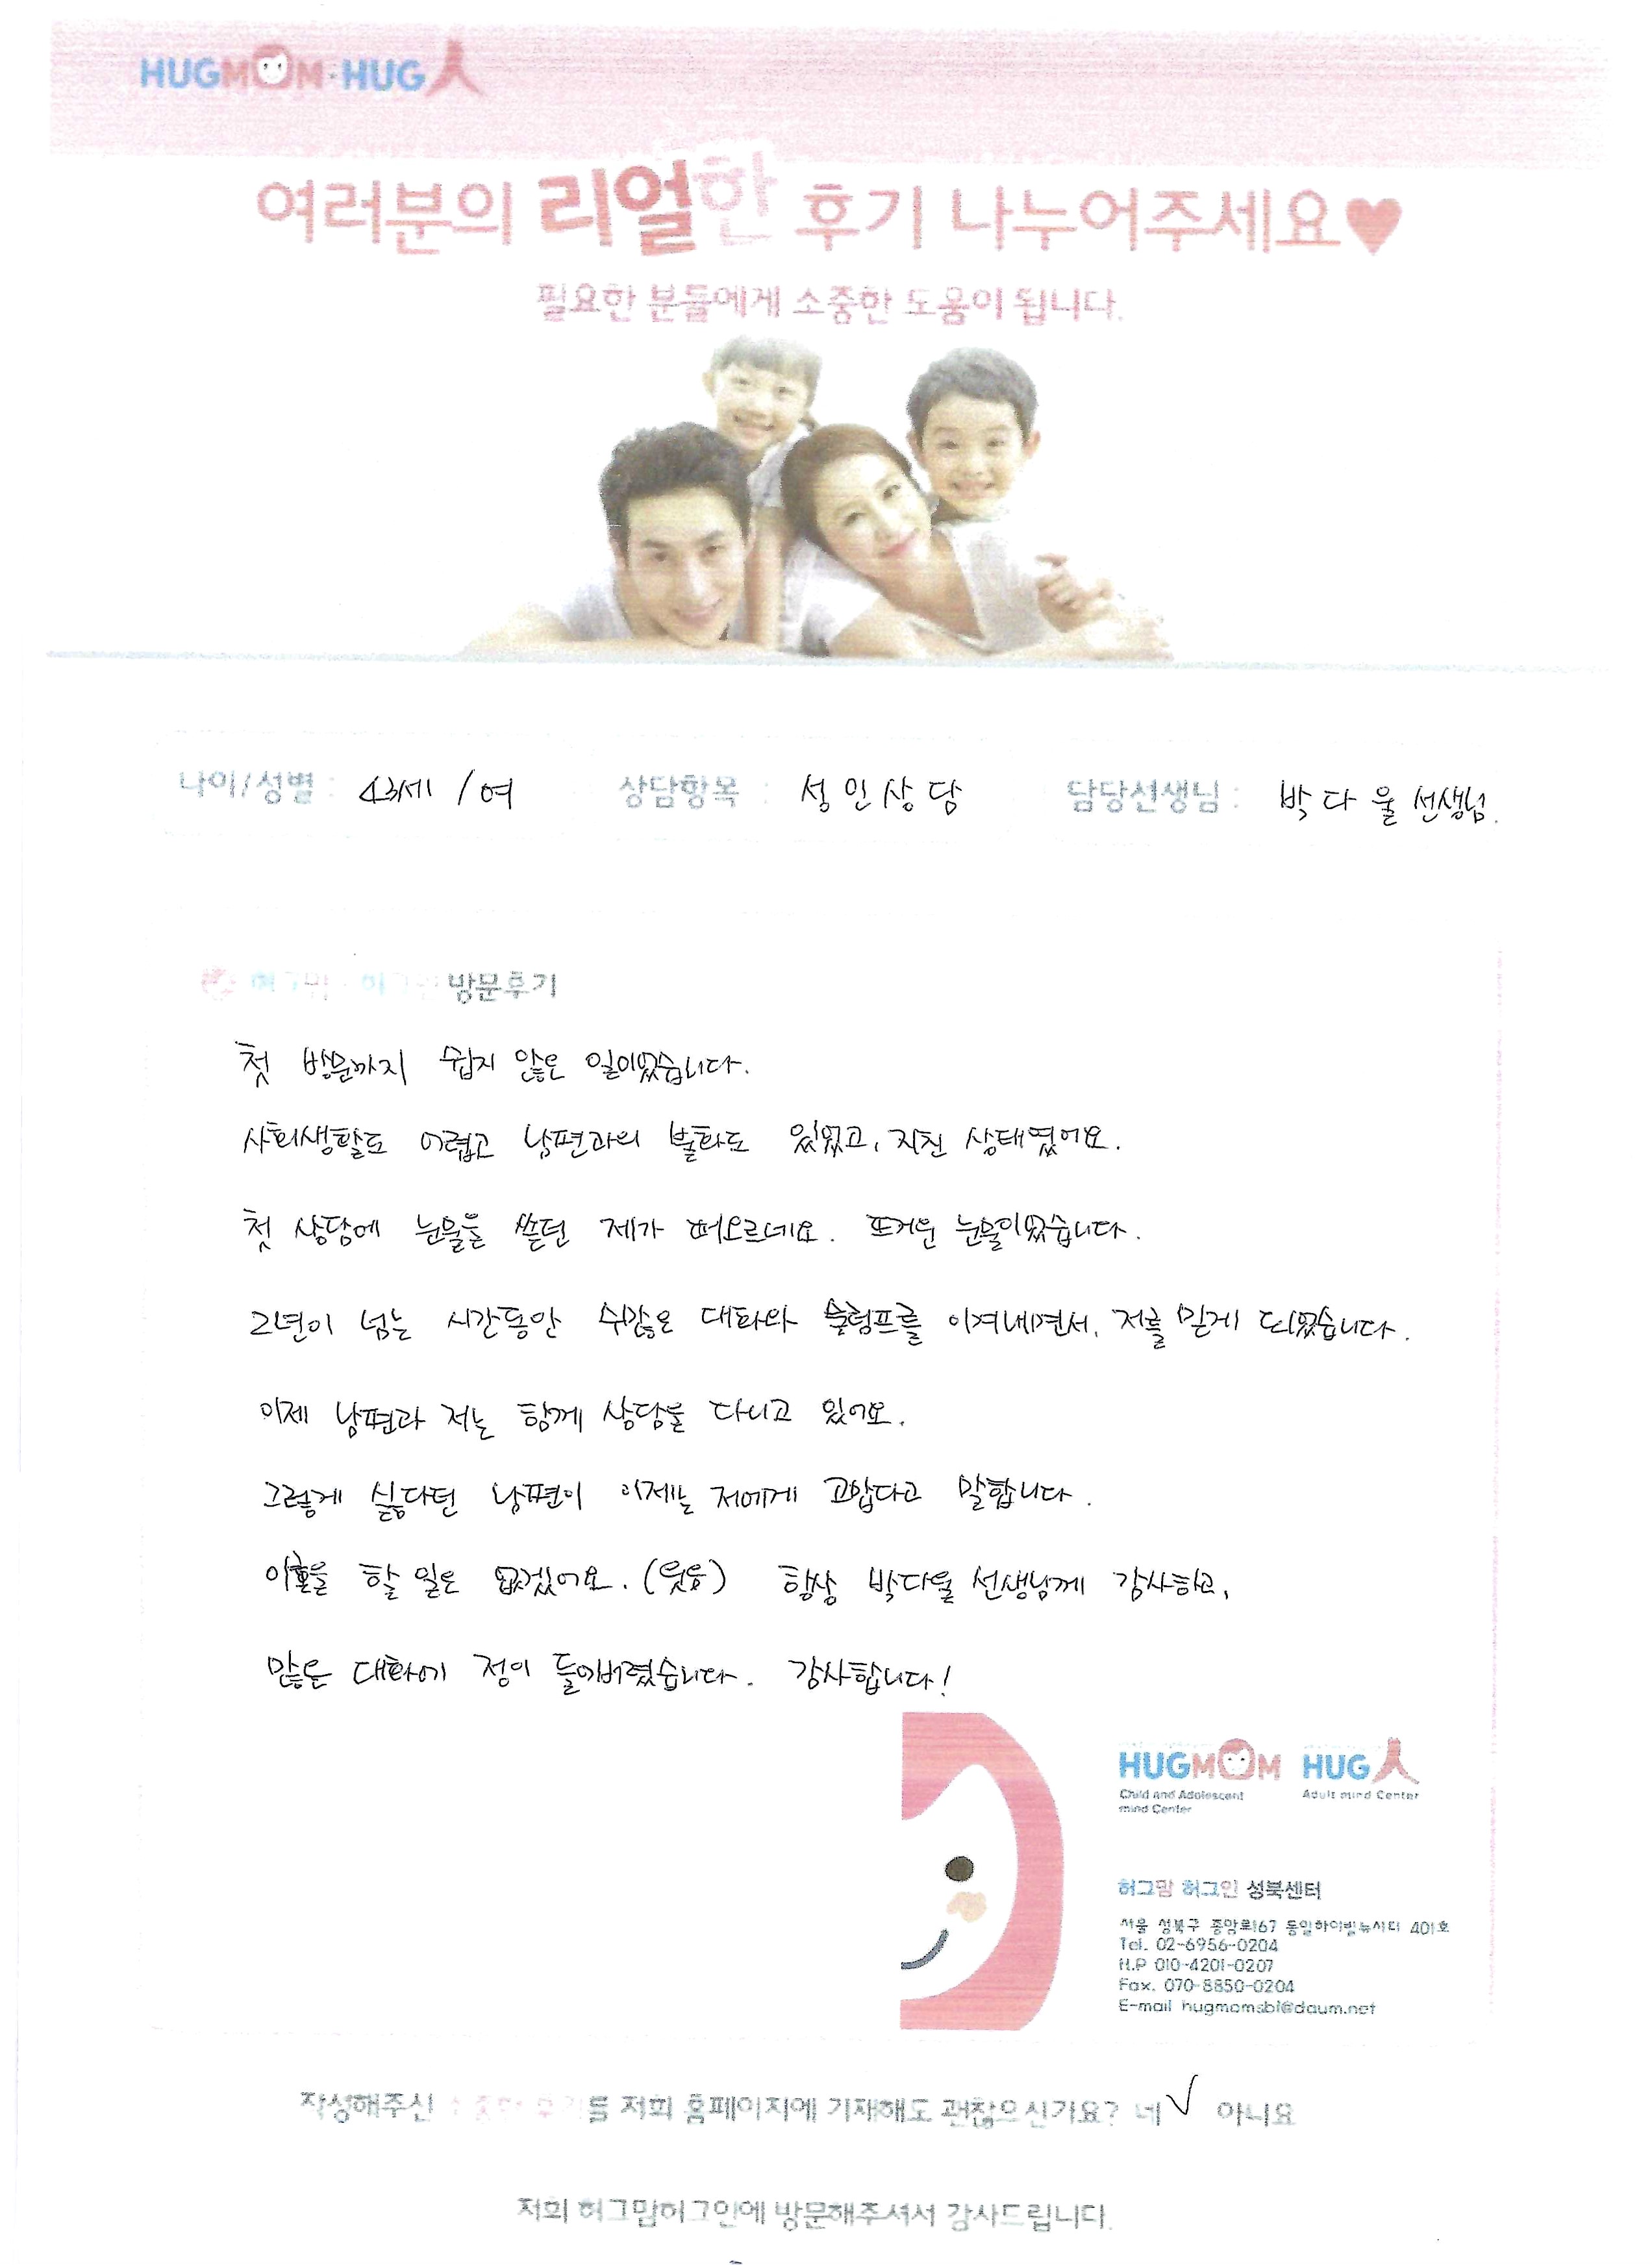 HUGMOM·HUG人
여러분의 리얼한 후기 나누어주세요♥
필요한 분들에게 소중한 도움이 됩니다.
나이/성별 : 43세 / 여 상담항목 : 성인상담 담당선생님 : 박다울 선생님.
허그맘·허그인 방문후기
첫 방문까지 쉽지 않은 일이었습니다.
사회생활도 어렵고 남편과의 불화도 있었고, 지친 상태였어요.
첫 상담에 눈물을 쏟던 제가 떠오르네요. 뜨거운 눈물이었습니다.
2년이 넘는 시간동안 수많은 대화와 슬럼프를 이겨내면서, 저를 믿게 되었습니다.
이제 남편과 저는 함께 상담을 다니고 있어요.
그렇게 싫다던 남편이 이제는 저에게 고맙다고 말합니다.
이혼을 할 일은 없겠어요. (웃음) 항상 박다울 선생님께 감사하고,
많은 대화에 정이 들어버렸습니다. 감사합니다!
HUGMOM HUG人
Child and Adolescent Adult mind Center
mind Center
허그맘 허그인 성북센터
서울 성북구 종암로167 동일하이빌뉴시티 401호
Tel. 02-6956-0204
H.P 010-4201-0207
Fax. 070-8850-0204
E-mail hugmomsbl@daum.net
작성해주신 소중한 후기를 저희 홈페이지에 기재해도 괜찮으신가요? 네 √ 아니요
저희 허그맘허그인에 방문해주셔서 감사드립니다.